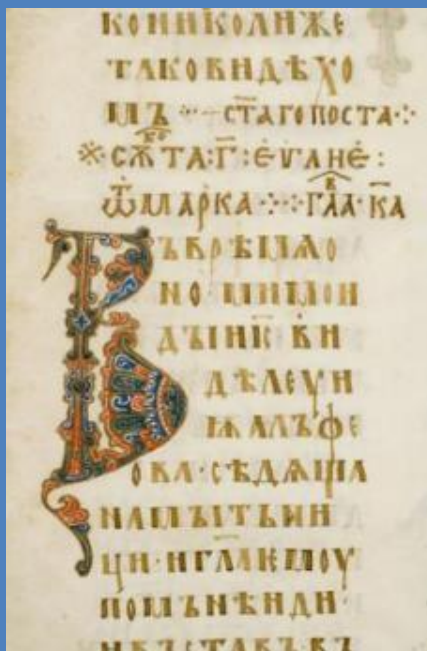 КОНИКОЛИЖЕ
ТАКОВИДѢХО
МЪ ·:· — СТ҃АГО ПОСТА·:·
※ СѪ҃ТА·Г҃·ЕѴ҃ЛИЕ:
Ѿ МАРКА·:·:·ГЛА҃·К҃А
ВЪВРѢМѦО
НО МИМОИ
ДЫИІС҃ ВИ
ДѢЛЕѴГИ
ѬАЛЪФЕ
ОВА·СѢДѦЩА
НАМЫТЬНИ
ЦИ·ИГЛ҃АѤМОУ
ПОМЪНѢИДИ·
ИВЪСТАВЪВЪ